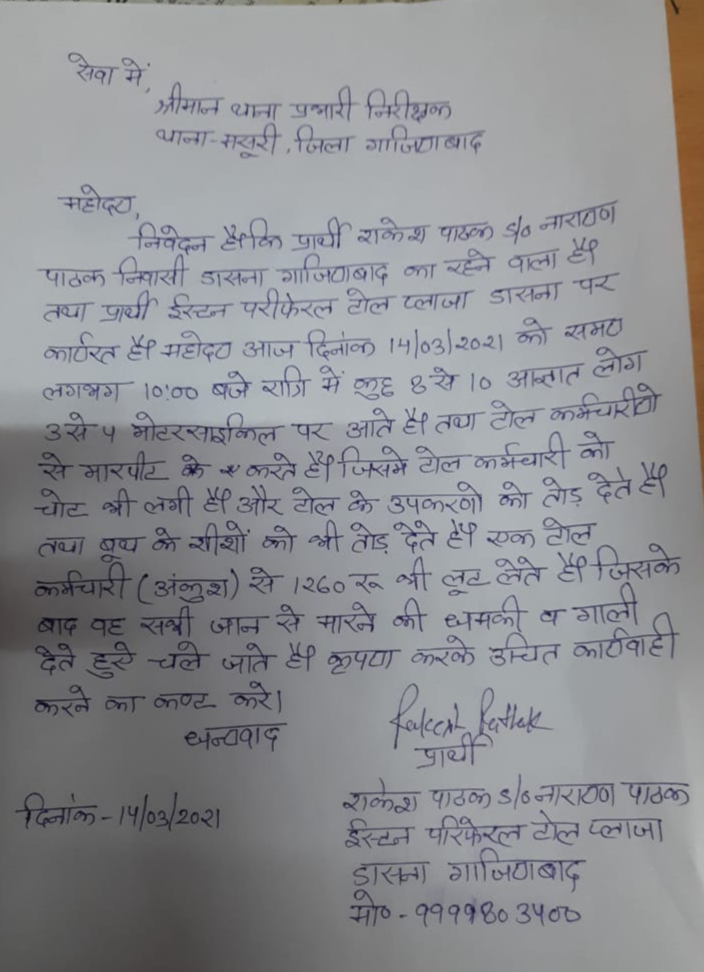 सेवा में,
श्रीमान थाना प्रभारी निरीक्षक
थाना-मसूरी, जिला गाजियाबाद
महोदय,
निवेदन है कि प्रार्थी राकेश पाठक S/o नारायण
पाठक निवासी डासना गाजियाबाद का रहने वाला है।
तथा प्रार्थी ईस्टन परीफेरल टोल प्लाजा डासना पर
कार्यरत है। महोदय आज दिनांक 14/03/2021 को समय
लगभग 10:00 बजे रात्रि में कुछ 8 से 10 अज्ञात लोग
3 से 4 मोटरसाइकिल पर आते है। तथा टोल कर्मचारीयो
से मारपीट के करते है। जिसमे टोल कर्मचारी को
चोट भी लगी है। और टोल के उपकरणो को तोड़ देते है।
तथा बूथ के शीशों को भी तोड़ देते है। एक टोल
कर्मचारी (अंकुश) से 1260 रू भी लूट लेते है। जिसके
बाद वह सभी जान से मारने की धमकी व गाली
देते हुऐ चले जाते है। कृपया करके उचित कार्यवाही
करने का कष्ट करे।
धन्यवाद
Rakesh Pathak
प्रार्थी
दिनांक - 14/03/2021
राकेश पाठक S/o नारायण पाठक
ईस्टन परिफेरल टोल प्लाजा
डासना गाजियाबाद
मो० - 9999803400